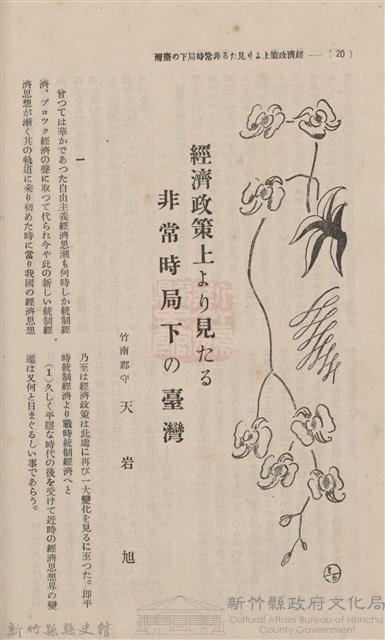 (20)――經濟政策上より見たる非常時局下の臺灣
經濟政策上より見たる
非常時局下の臺灣
竹南郡守 天岩旭
一
曾つては華かであつた自由主義經濟思潮も何時しか統制經
濟、ブロック經濟の聲に取つて代られ今や此の新しい統制經
濟思想が漸く其の軌道に乘り初めた時に當り我國の經濟思想
乃至は經濟政策は此處に再び一大變化を見るに至つた。卽平
時統制經濟より戰時統制經濟へと
(1)久しく平穩な時代の後を受けて近時の經濟思想界の變
遷は又何と目まぐるしい事であらう。
新竹縣縣史館
新竹縣政府文化局
Cultural Affairs Bureau of Hsinchu
County Government